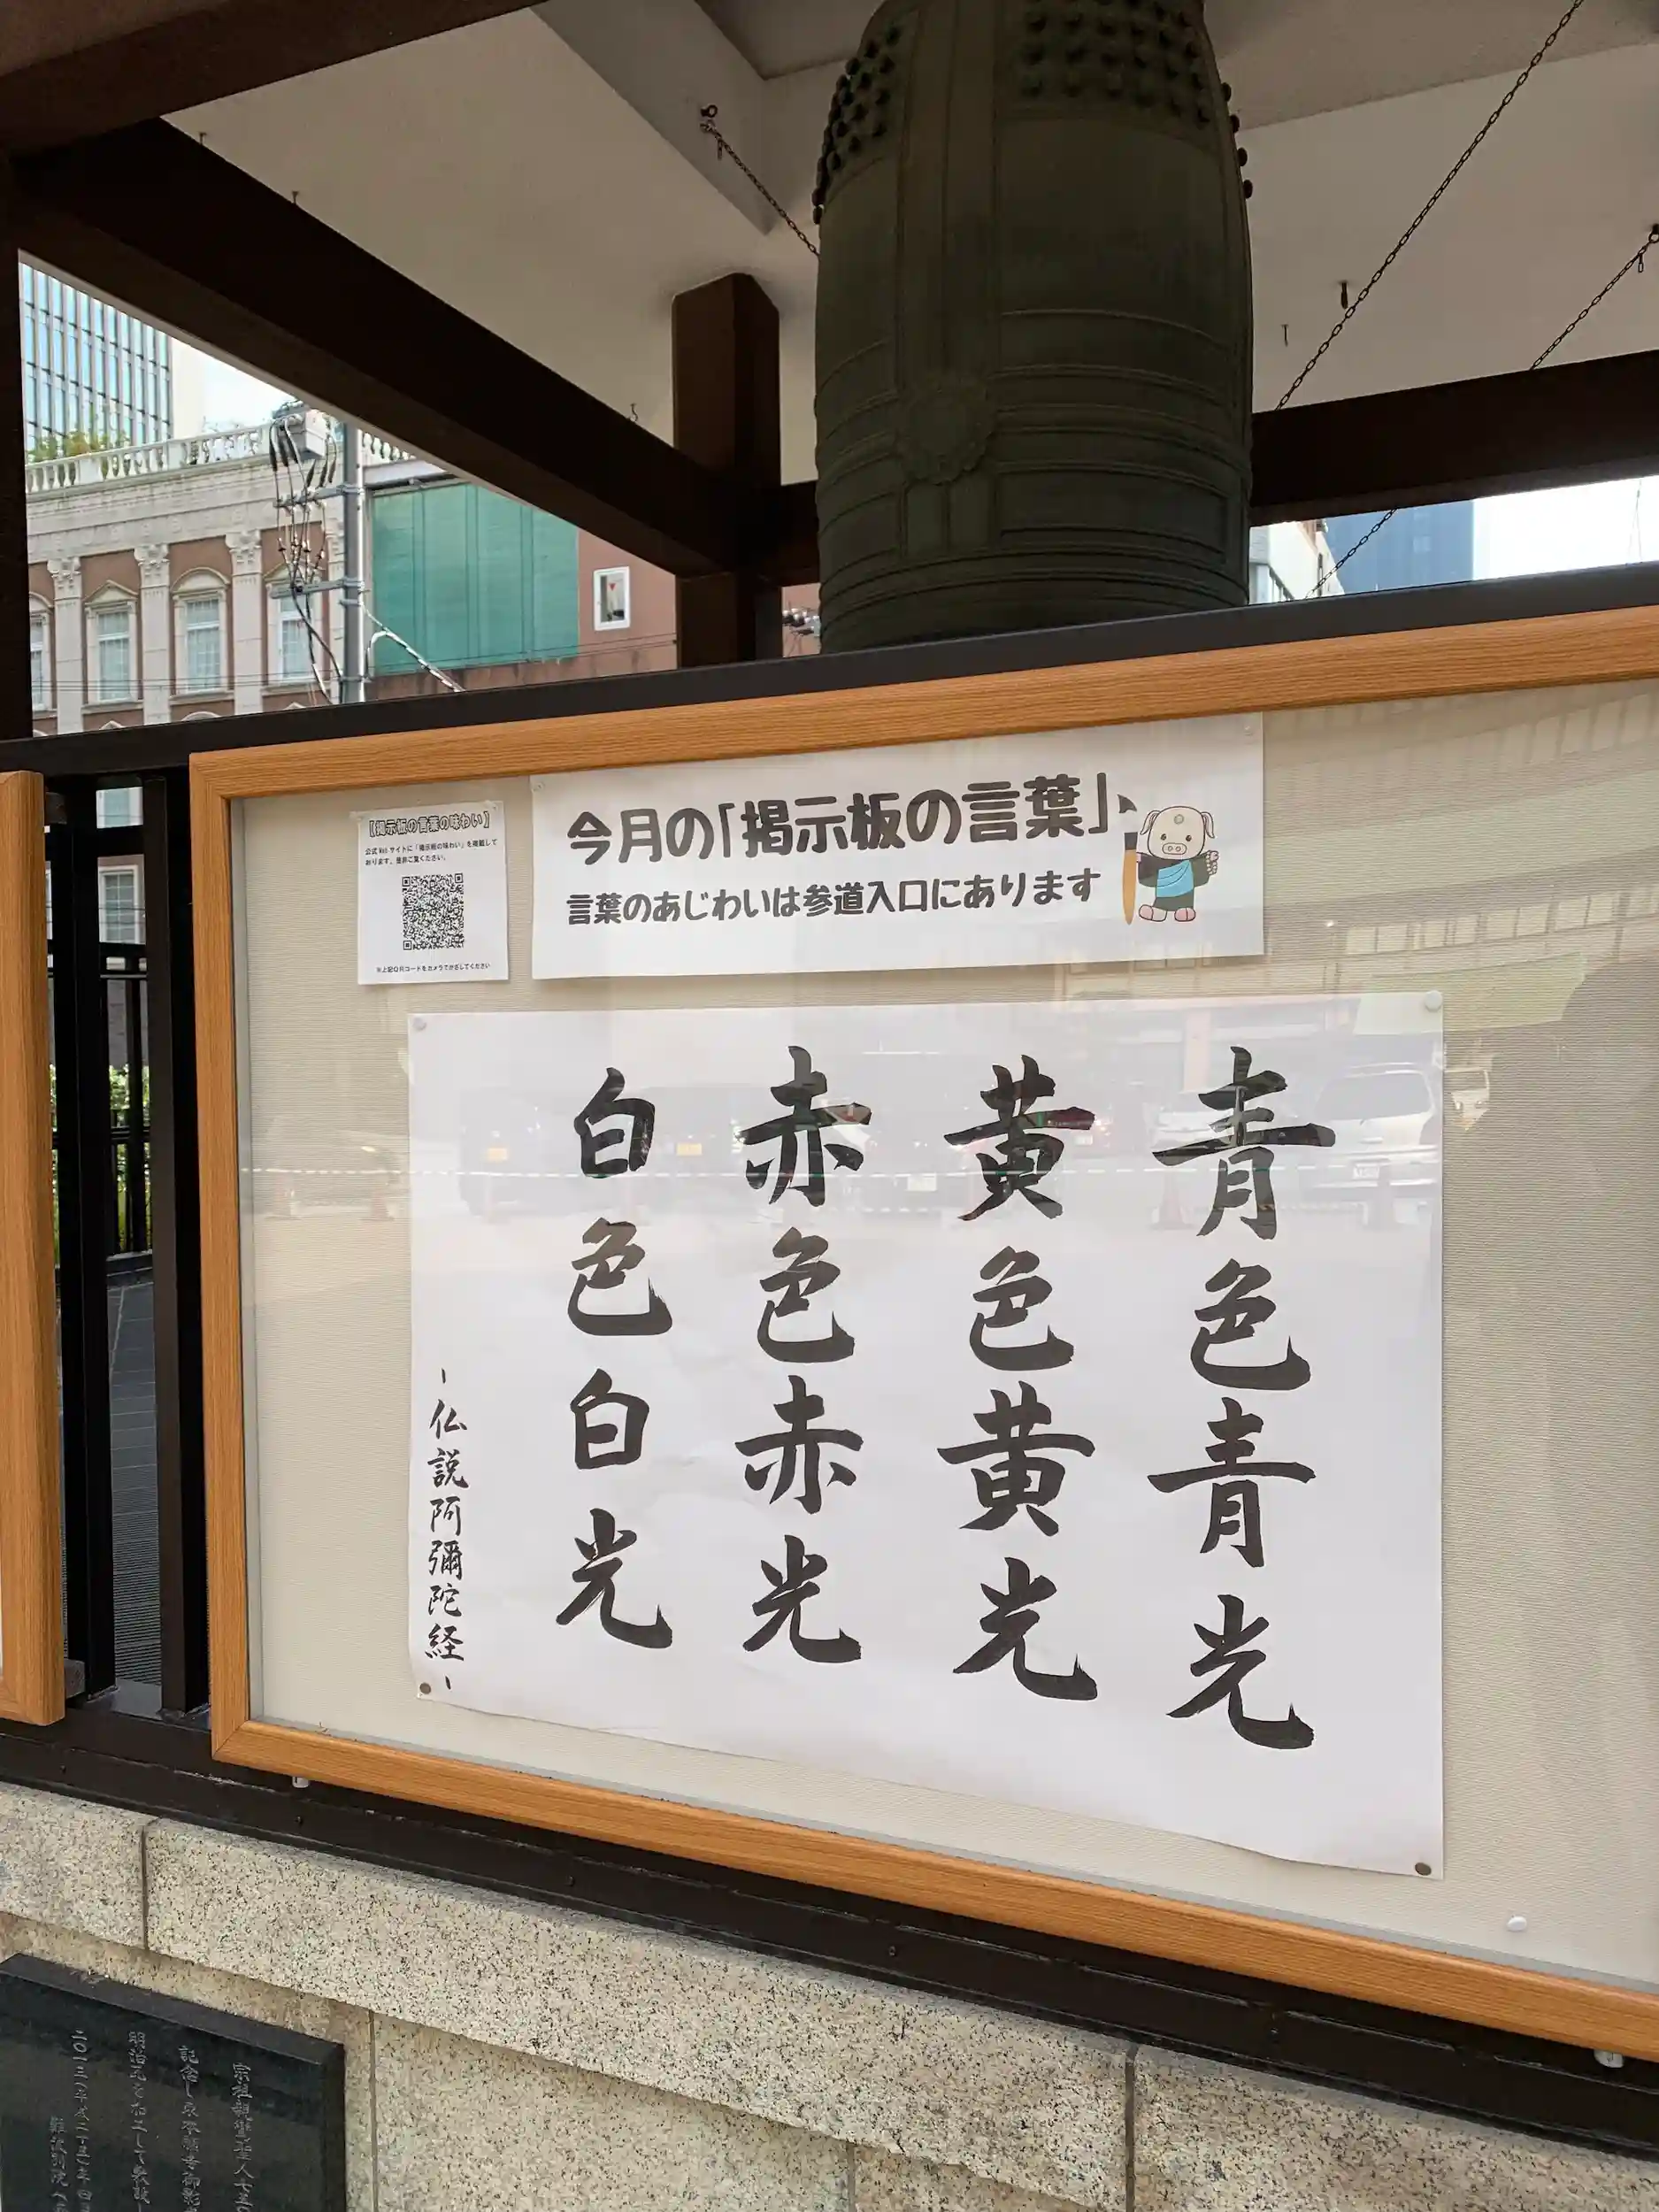 今月の「掲示板の言葉」
言葉のあじわいは参道入口にあります
【掲示板の言葉の味わい】
公式Webサイトに「掲示板の味わい」を掲載して
おります。是非ご覧ください。
※上記QRコードをカメラでかざしてください
青色青光
黄色黄光
赤色赤光
白色白光
-仏説阿彌陀経-
宗祖親鸞聖人七五
記念し東本願寺御影
明治
二〇一三年
難波別院